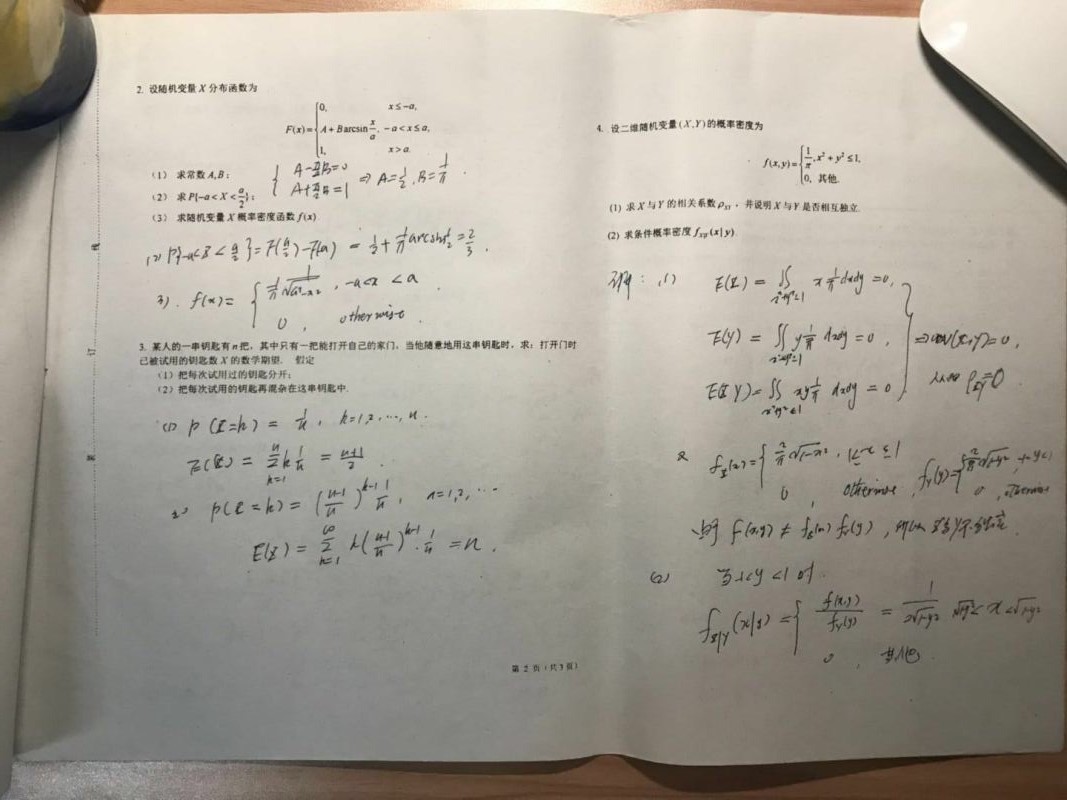 2. 设随机变量 X 分布函数为
F(x)={0, x≤-a,
A+B arcsin x/a, -a<x≤a,
1, x>a.
(1) 求常数 A,B;
{A-π/2 B=0
A+π/2 B=1 ⇒ A=1/2, B=1/π.
(2) 求 P{-a<X<a/2};
(3) 求随机变量 X 概率密度函数 f(x).
(2) P{-a<X<a/2}=F(a/2)-F(-a) = 1/2+1/π arcsin 1/2 = 2/3.
3). f(x)={ 1/π 1/√(a²-x²), -a<x<a
0, otherwise.
3. 某人的一串钥匙有 n 把,其中只有一把能打开自己的家门,当他随意地用这串钥匙时,求:打开门时
已被试用的钥匙数 X 的数学期望. 假定
(1) 把每次试用过的钥匙分开;
(2) 把每次试用的钥匙再混杂在这串钥匙中.
(1) P(X=k) = 1/n, k=1,2,…,n.
E(X) = Σ_{k=1}^{n} k 1/n = (n+1)/2
2) P(X=k) = ((n-1)/n)^{k-1} 1/n, n=1,2,…
E(X) = Σ_{k=1}^{∞} k((n-1)/n)^{k-1}·1/n = n.
第 2 页(共 3 页)
4. 设二维随机变量 (X,Y) 的概率密度为
f(x,y)={1/π, x²+y²≤1,
0, 其他.
(1) 求 X 与 Y 的相关系数 ρ_{XY},并说明 X 与 Y 是否相互独立.
(2) 求条件概率密度 f_{X|Y}(x|y).
(1) E(X) = ∬_{x²+y²≤1} x 1/π dxdy = 0,
E(Y) = ∬_{x²+y²≤1} y 1/π dxdy = 0,
E(XY) = ∬_{x²+y²≤1} xy 1/π dxdy = 0
⇒ cov(X,Y)=0,
从而 ρ_{XY}=0
又 f_X(x)={ 2/π √(1-x²), ≤x≤1
0, otherwise, f_Y(y)={ 2/π √(1-y²),
0, otherwise
f(x,y) ≠ f_X(x) f_Y(y), 所以 X与Y不独立
(2) 当 <y<1 时
f_{X|Y}(x|y) ={ f(x,y)/f_Y(y) = 1/(2√(1-y²)) <x<√(1-y²)
0, 其他.